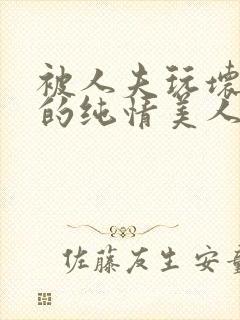 被人夫玩壞
的纯情美人
佐藤友生 安